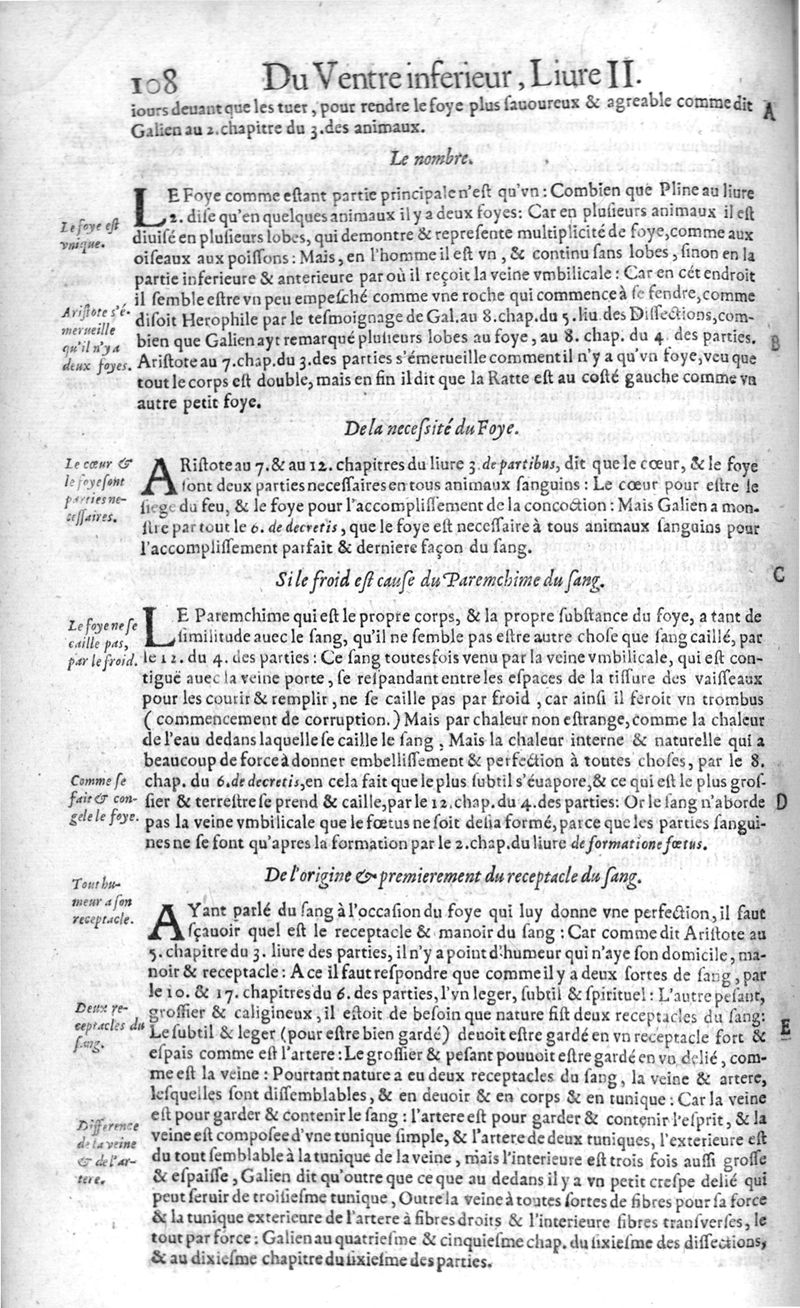 108 Du Ventre inferieur, Liure II.
iours deuant que les tuer, pour rendre le foye plus sauoureux & agreable comme dit
A
Galien au 2. chapitre du 3. des animaux.
Le nombre.
Le foye est
vnique.
LE Foye comme estant partie principale n'est qu'vn : Combien que Pline au liure
2. dise qu'en quelques animaux il y a deux foyes : Car en plusieurs animaux il est
diuisé en plusieurs lobes, qui demontre & represente multiplicité de foye, comme aux
oiseaux aux poissons : Mais, en l'homme il est vn, & continu sans lobes, sinon en la
partie inferieure & anterieure par où il reçoit la veine vmbilicale : Car en cét endroit
il semble estre vn peu empesché comme vne roche qui commence à se fendre, comme
Aristote s'é-
merueille
qu'il n'y a
deux foyes.
disoit Herophile par le tesmoignage de Gal. au 8. chap. du 5. liu. des Dissections, com-
bien que Galien ayt remarqué plusieurs lobes au foye, au 8. chap. du 4. des parties.
B
Aristote au 7. chap. du 3. des parties s'émerueille comment il n'y a qu'vn foye, veu que
tout le corps est double, mais en fin il dit que la Ratte est au costé gauche comme vn
autre petit foye.
De la necessité du Foye.
Le cœur &
le foye sont
parties ne-
cessaires.
ARistote au 7. & au 12. chapitres du liure 3. de partibus, dit que le cœur, & le foye
sont deux parties necessaires en tous animaux sanguins : Le cœur pour estre le
siege du feu, & le foye pour l'accomplissement de la concoction : Mais Galien a mon-
stre par tout le 6. de decretis, que le foye est necessaire à tous animaux sanguins pour
l'accomplissement parfait & derniere façon du sang.
Si le froid est cause du Paremchime du sang.
C
Le foye ne se
caille pas,
par le froid.
LE Paremchime qui est le propre corps, & la propre substance du foye, a tant de
similitude auec le sang, qu'il ne semble pas estre autre chose que sang caillé, par
le 12. du 4. des parties : Ce sang toutesfois venu par la veine vmbilicale, qui est con-
tiguë auec la veine porte, se respandant entre les espaces de la tissure des vaisseaux
pour les courir & remplir, ne se caille pas par froid, car ainsi il feroit vn trombus
( commencement de corruption. ) Mais par chaleur non estrange, comme la chaleur
de l'eau dedans laquelle se caille le sang, Mais la chaleur interne & naturelle qui a
beaucoup de force à donner embellissement & perfection à toutes choses, par le 8.
Comme se
fait & con-
gele le foye.
chap. du 6. de decretis, en cela fait que le plus subtil s'éuapore, & ce qui est le plus gros-
sier & terrestre se prend & caille, par le 12. chap. du 4. des parties : Or le sang n'aborde
D
pas la veine vmbilicale que le fœtus ne soit desia formé, parce que les parties sangui-
nes ne se font qu'apres la formation par le 2. chap. du liure de formatione fœtus.
De l'origine & premierement du receptacle du sang.
Tout hu-
meur a son
receptacle.
AYant parlé du sang à l'occasion du foye qui luy donne vne perfection, il faut
sçauoir quel est le receptacle & manoir du sang : Car comme dit Aristote au
5. chapitre du 3. liure des parties, il n'y a point d'humeur qui n'aye son domicile, ma-
noir & receptacle : A ce il faut respondre que comme il y a deux sortes de sang, par
le 10. & 17. chapitres du 6. des parties, l'vn leger, subtil & spirituel : L'autre pesant,
Deux re-
ceptacles du
sang.
grossier & caligineux, il estoit de besoin que nature fist deux receptacles du sang :
Le subtil & leger (pour estre bien gardé) deuoit estre gardé en vn receptacle fort &
E
espais comme est l'artere : Le grossier & pesant pouuoit estre gardé en vn delié, com-
me est la veine : Pourtant nature a eu deux receptacles du sang, la veine & artere,
lesquelles sont dissemblables, & en deuoir & en corps & en tunique : Car la veine
est pour garder & contenir le sang : l'artere est pour garder & contenir l'esprit, & la
Difference
de la veine
& de l'ar-
tere.
veine est composee d'vne tunique simple, & l'artere de deux tuniques, l'exterieure est
du tout semblable à la tunique de la veine, mais l'interieure est trois fois aussi grosse
& espaisse, Galien dit qu'outre que ce que au dedans il y a vn petit crespe delié qui
peut seruir de troisiesme tunique, Outre la veine à toutes sortes de fibres pour sa force
& la tunique exterieure de l'artere à fibres droits & l'interieure fibres transverses, le
tout par force : Galien au quatriesme & cinquiesme chap. du sixiesme des dissections,
& au dixiesme chapitre du sixiesme des parties.